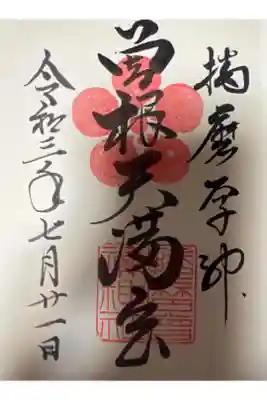 播磨学神
曽根天満宮
令和三年七月廿一日